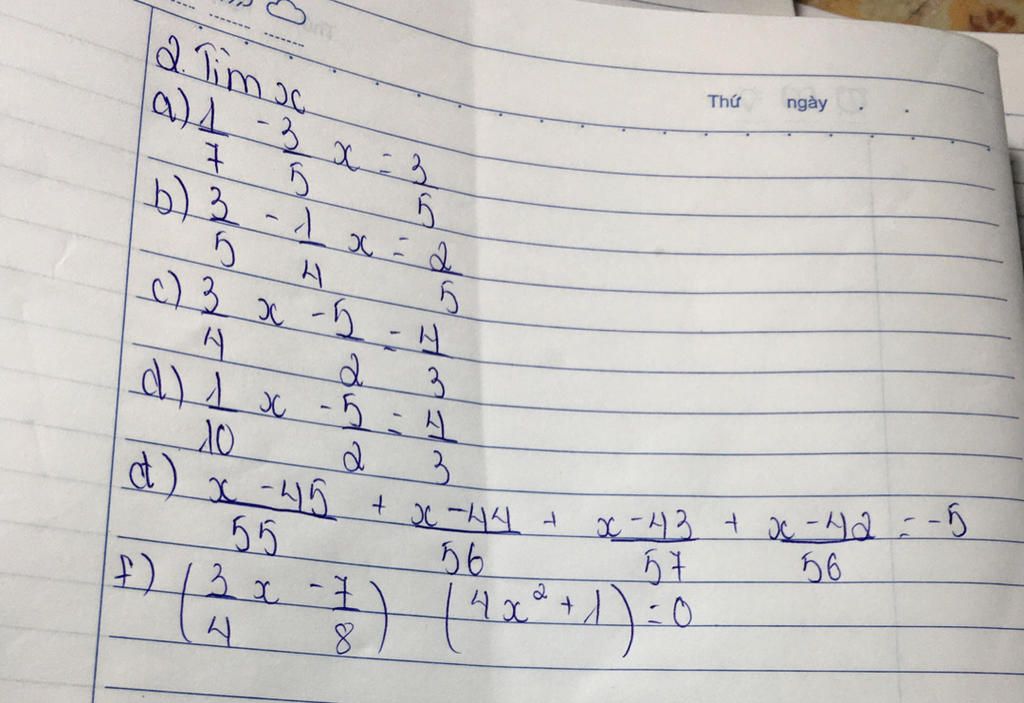 Thứ ngày
2. Tìm x
a) 1/7 - 3/5 x = 3/5
b) 3/5 - 1/4 x = 2/5
c) 3/4 x - 5/2 = 4/3
d) 1/10 x - 5/2 = 4/3
đ) x - 45/55 + x - 44/56 + x - 43/57 + x - 42/56 = -5
f) (3/4 x - 7/8) (4x² + 1) = 0